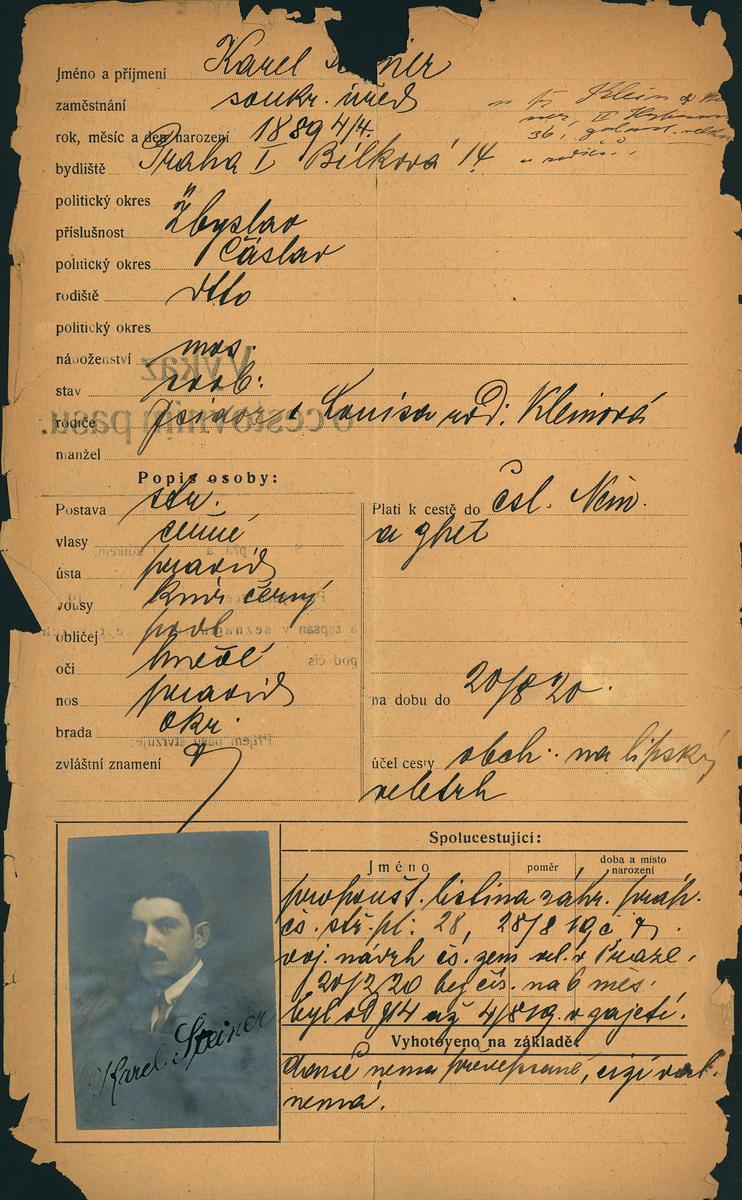 Jméno a příjmení Karel S ner
zaměstnání soukr. úřed
Klein &
rok, měsíc a den narození 1889 4/4.
36,
bydliště Praha I Bílková 14
politický okres
příslušnost Žbyslav
politický okres Čáslav
rodiště dtto
politický okres
náboženství mos.
stav svob.
rodiče Isidor a Louisa rod. Kleinová
manžel
Výkaz
o cestovním pasu.
Popis osoby:
Postava stř.
vlasy černé
ústa pravid
vousy knír černý
obličej podl
oči hnědé
nos pravid
brada okr.
zvláštní znamení
Platí k cestě do čsl. Něm.
a zpět
na dobu do 20/8 20.
účel cesty obch. na lipský
veletrh
Spolucestující:
Jméno poměr doba a místo narození
propoušt. listina záhr. prap.
čs. stř. pl. 28, 28/8 19
voj. návrh čs. zem. vel. v Praze,
20/2 20 bez čís. na 6 měs.
byl od 914 až 4/8 19 v zajetí.
Vyhotoveno na základě:
nemá
nemá.
Karel Steiner